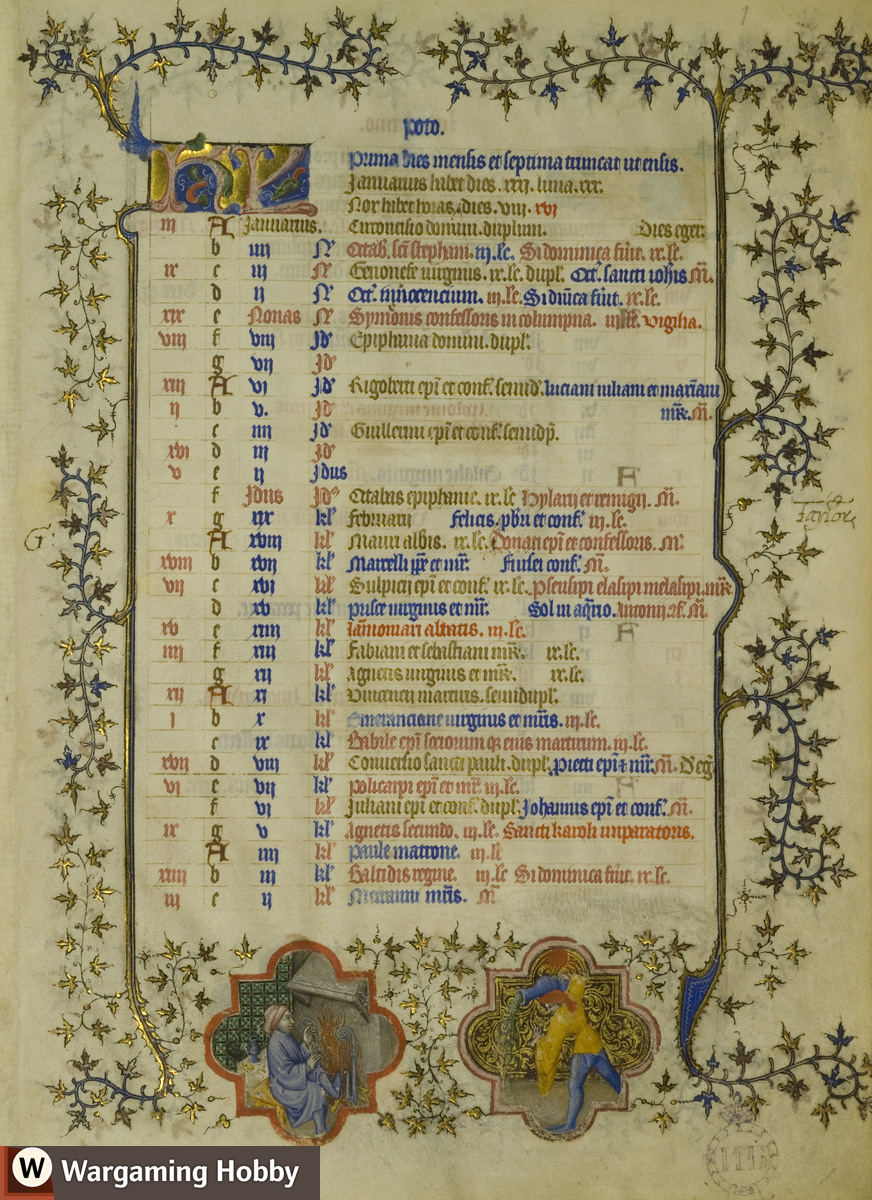 1
poto.
KL Prima dies mensis et septima truncat ut ensis.
Januarius habet dies .xxxi. luna .xxx.
Nox habet horas dies .viii. xvi
iii A Januarius. Circoncisio domini. duplum. Dies eger.
b iiii N Octab. sci stephani. iii. lc. Si dominica fuit. ix. lc.
xi c iii N Genovefe virginis. ix. lc. dupl. Oct. sancti iohis M.
d ii N Oct. innocencium. iii. lc. Si dnica fuit. ix. lc.
xix e Nonas N Symonis confessoris in columpna. Vigilia.
viii f viii Id Epiphania domini. dupl.
g vii Id
xiii A vi Id Rigoberti epi et conf. semid. luciani iuliani et maxiani
ii b v. Id mr. M.
c iiii Id Guillermi epi et conf. semidp.
xvi d iii Id
v e ii Idus F
f Idus Id Octabas epiphanie. ix. lc Hylarii et remigii. M.
x g xix kl Februarii Felicis pbri et conf. iii. lc.
A xviii kl Mauri abbis. ix. lc. Donati epi et confessoris. M.
xviii b xvii kl Marcelli pp et mr. Fursei conf. M.
vii c xvi kl Sulpicii epi et conf. ix. lc. Pseusipi elasipi melasipi. mr
d xv kl Prisce virginis et mr. Sol in aqrio. Antonii M.
xv e xiiii kl Launomari abbatis. iii. lc. F
iiii f xiii kl Fabiani et sebastiani mr. ix. lc.
g xii kl Agnetis virginis et mr. ix. lc.
xii A xi kl Vincencii martiris. semidupl.
i b x kl Emeranciane virginis et mris. iii. lc.
c ix kl Babile epi sociorum qz eius martirum. iii. lc.
xvii d viii kl Conversio sancti pauli. dupl. Preiecti epi et mr. M. D eg.
vi e vii kl Policarpi epi et mr. iii. lc. F
f vi kl Juliani epi et conf. dupl. Johannis epi et conf. M.
ix g v kl Agnetis secundo. iii. lc. Sancti karoli imparatoris.
A iiii kl Paule matrone. iii. lc
xiiii b iii kl Baltidis regine. iii. lc Si dominica fuit. ix. lc.
iii c ii kl mris. M
G
Taylor
W Wargaming Hobby